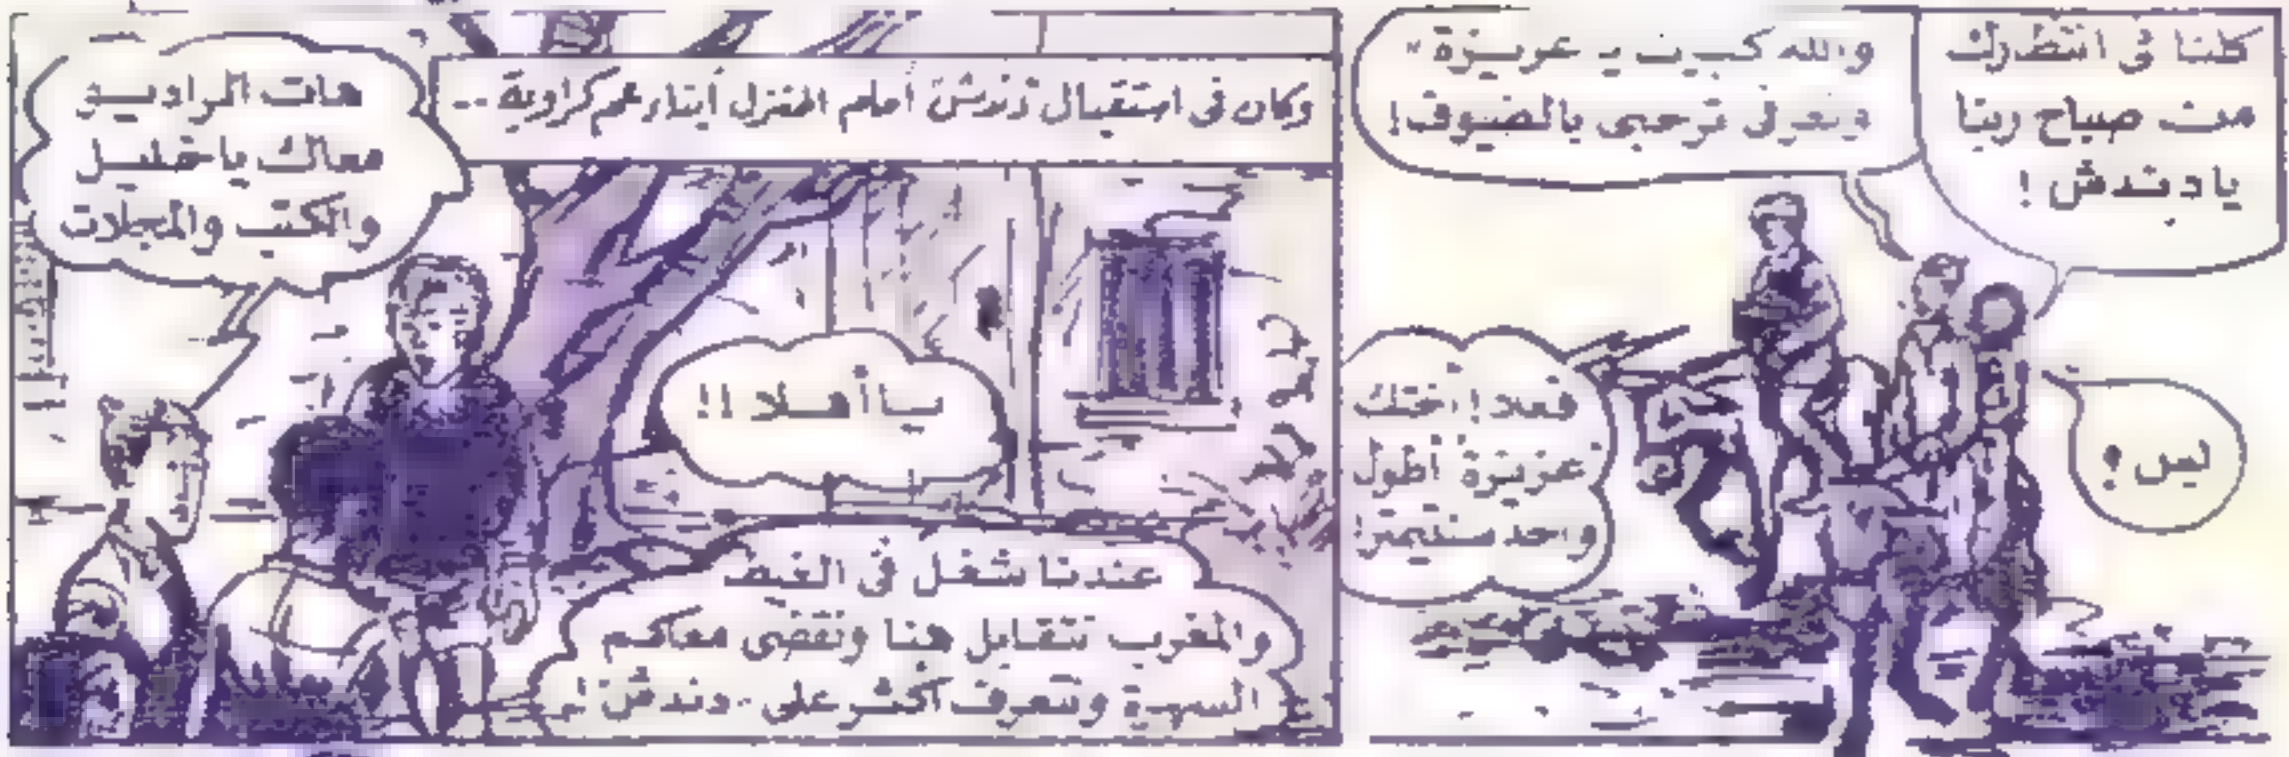 كلنا فى انتظارك
من صباح ربنا
يا دندش !
والله كبرت يا عزيزة
وتعرفى ترحبى بالضيوف !
بس !
فعلا ! أختك
عزيزة أطول
واحد سنتيمتر !
وكان فى استقبال دندش أمام المنزل أبناء عم كراوية ..
هات الراديو
معاك يا خليل
والكتب والمجلات
يا أهلا !!
عندنا شغل فى الغيط
والمغرب نتقابل هنا ونقضى معاكم
السهرة ونتعرف أكثر على دندش !